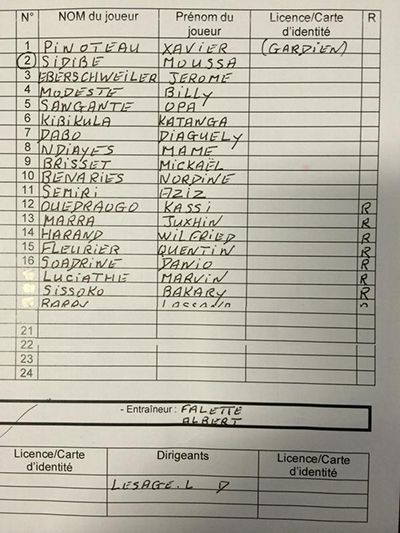 N° NOM du joueur Prénom du joueur Licence/Carte d'identité R
1 PINOTEAU XAVIER (GARDIEN)
2 SIDIBE MOUSSA
3 EBERSCHWEILER JEROME
4 MODESTE BILLY
5 SANGANTE OPA
6 KIBIKULA KATANGA
7 DABO DIAGUELY
8 NDIAYES MAME
9 BRISSET MICKAËL
10 BENARIES NORDINE
11 SEMIRI AZIZ
12 OUEDRAOGO KASSI R
13 MARRA JUXHIN R
14 HARAND WILFRIED R
15 FLEURIER QUENTIN R
16 SOADRINE DANIO R
LUCIATHE MARVIN R
SISSOKO BAKARY R
R
21
22
23
24
- Entraîneur : FALETTE
ALBERT
Licence/Carte d'identité Dirigeants Licence/Carte d'identité
LESAGE.L D